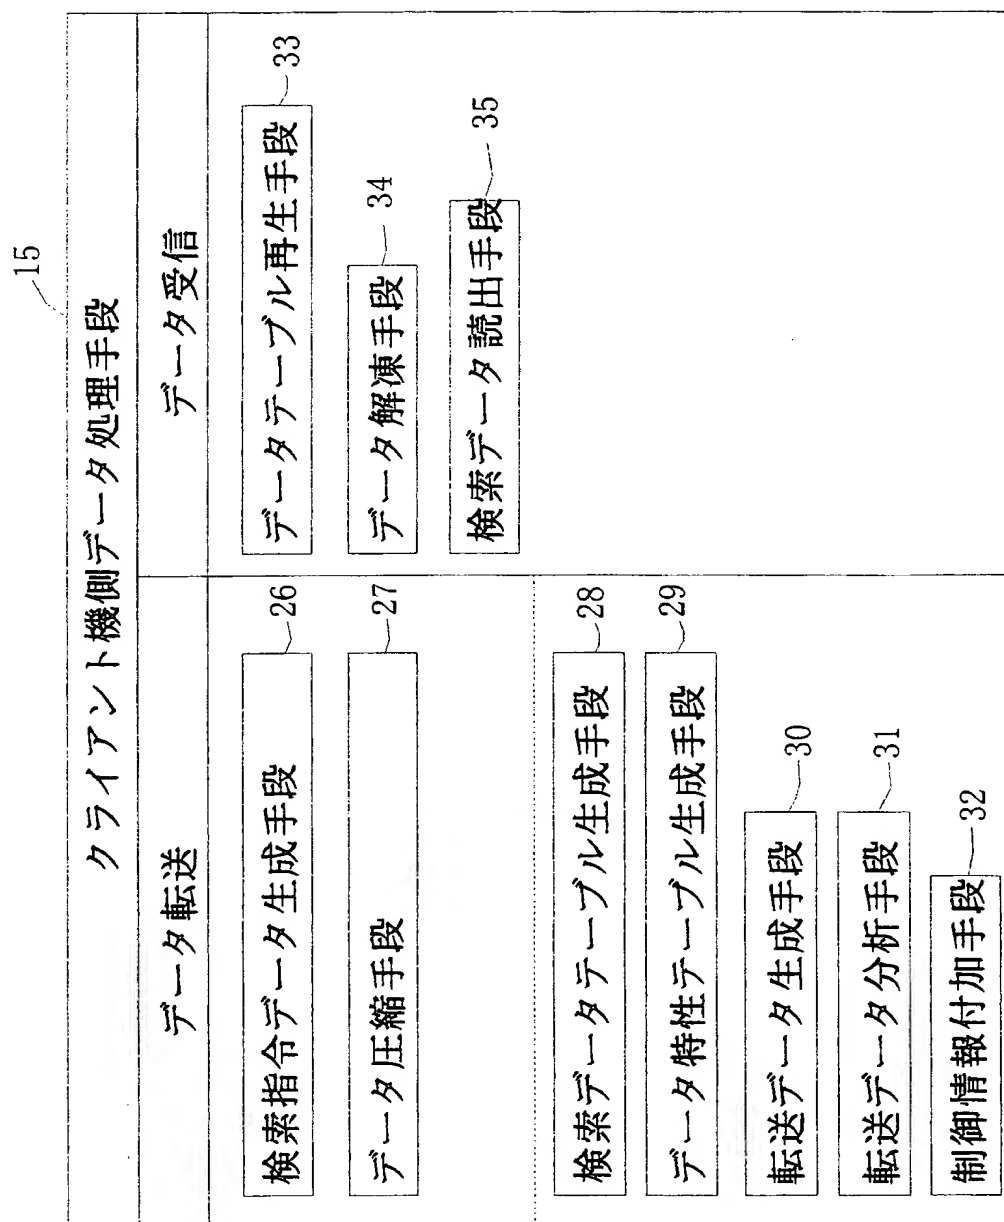 15
クライアント機側データ処理手段
データ転送
データ受信
検索指令データ生成手段
26
データ圧縮手段
27
検索データテーブル生成手段
28
データ特性テーブル生成手段
29
転送データ生成手段
30
転送データ分析手段
31
制御情報付加手段
32
データテーブル再生手段
33
データ解凍手段
34
検索データ読出手段
35